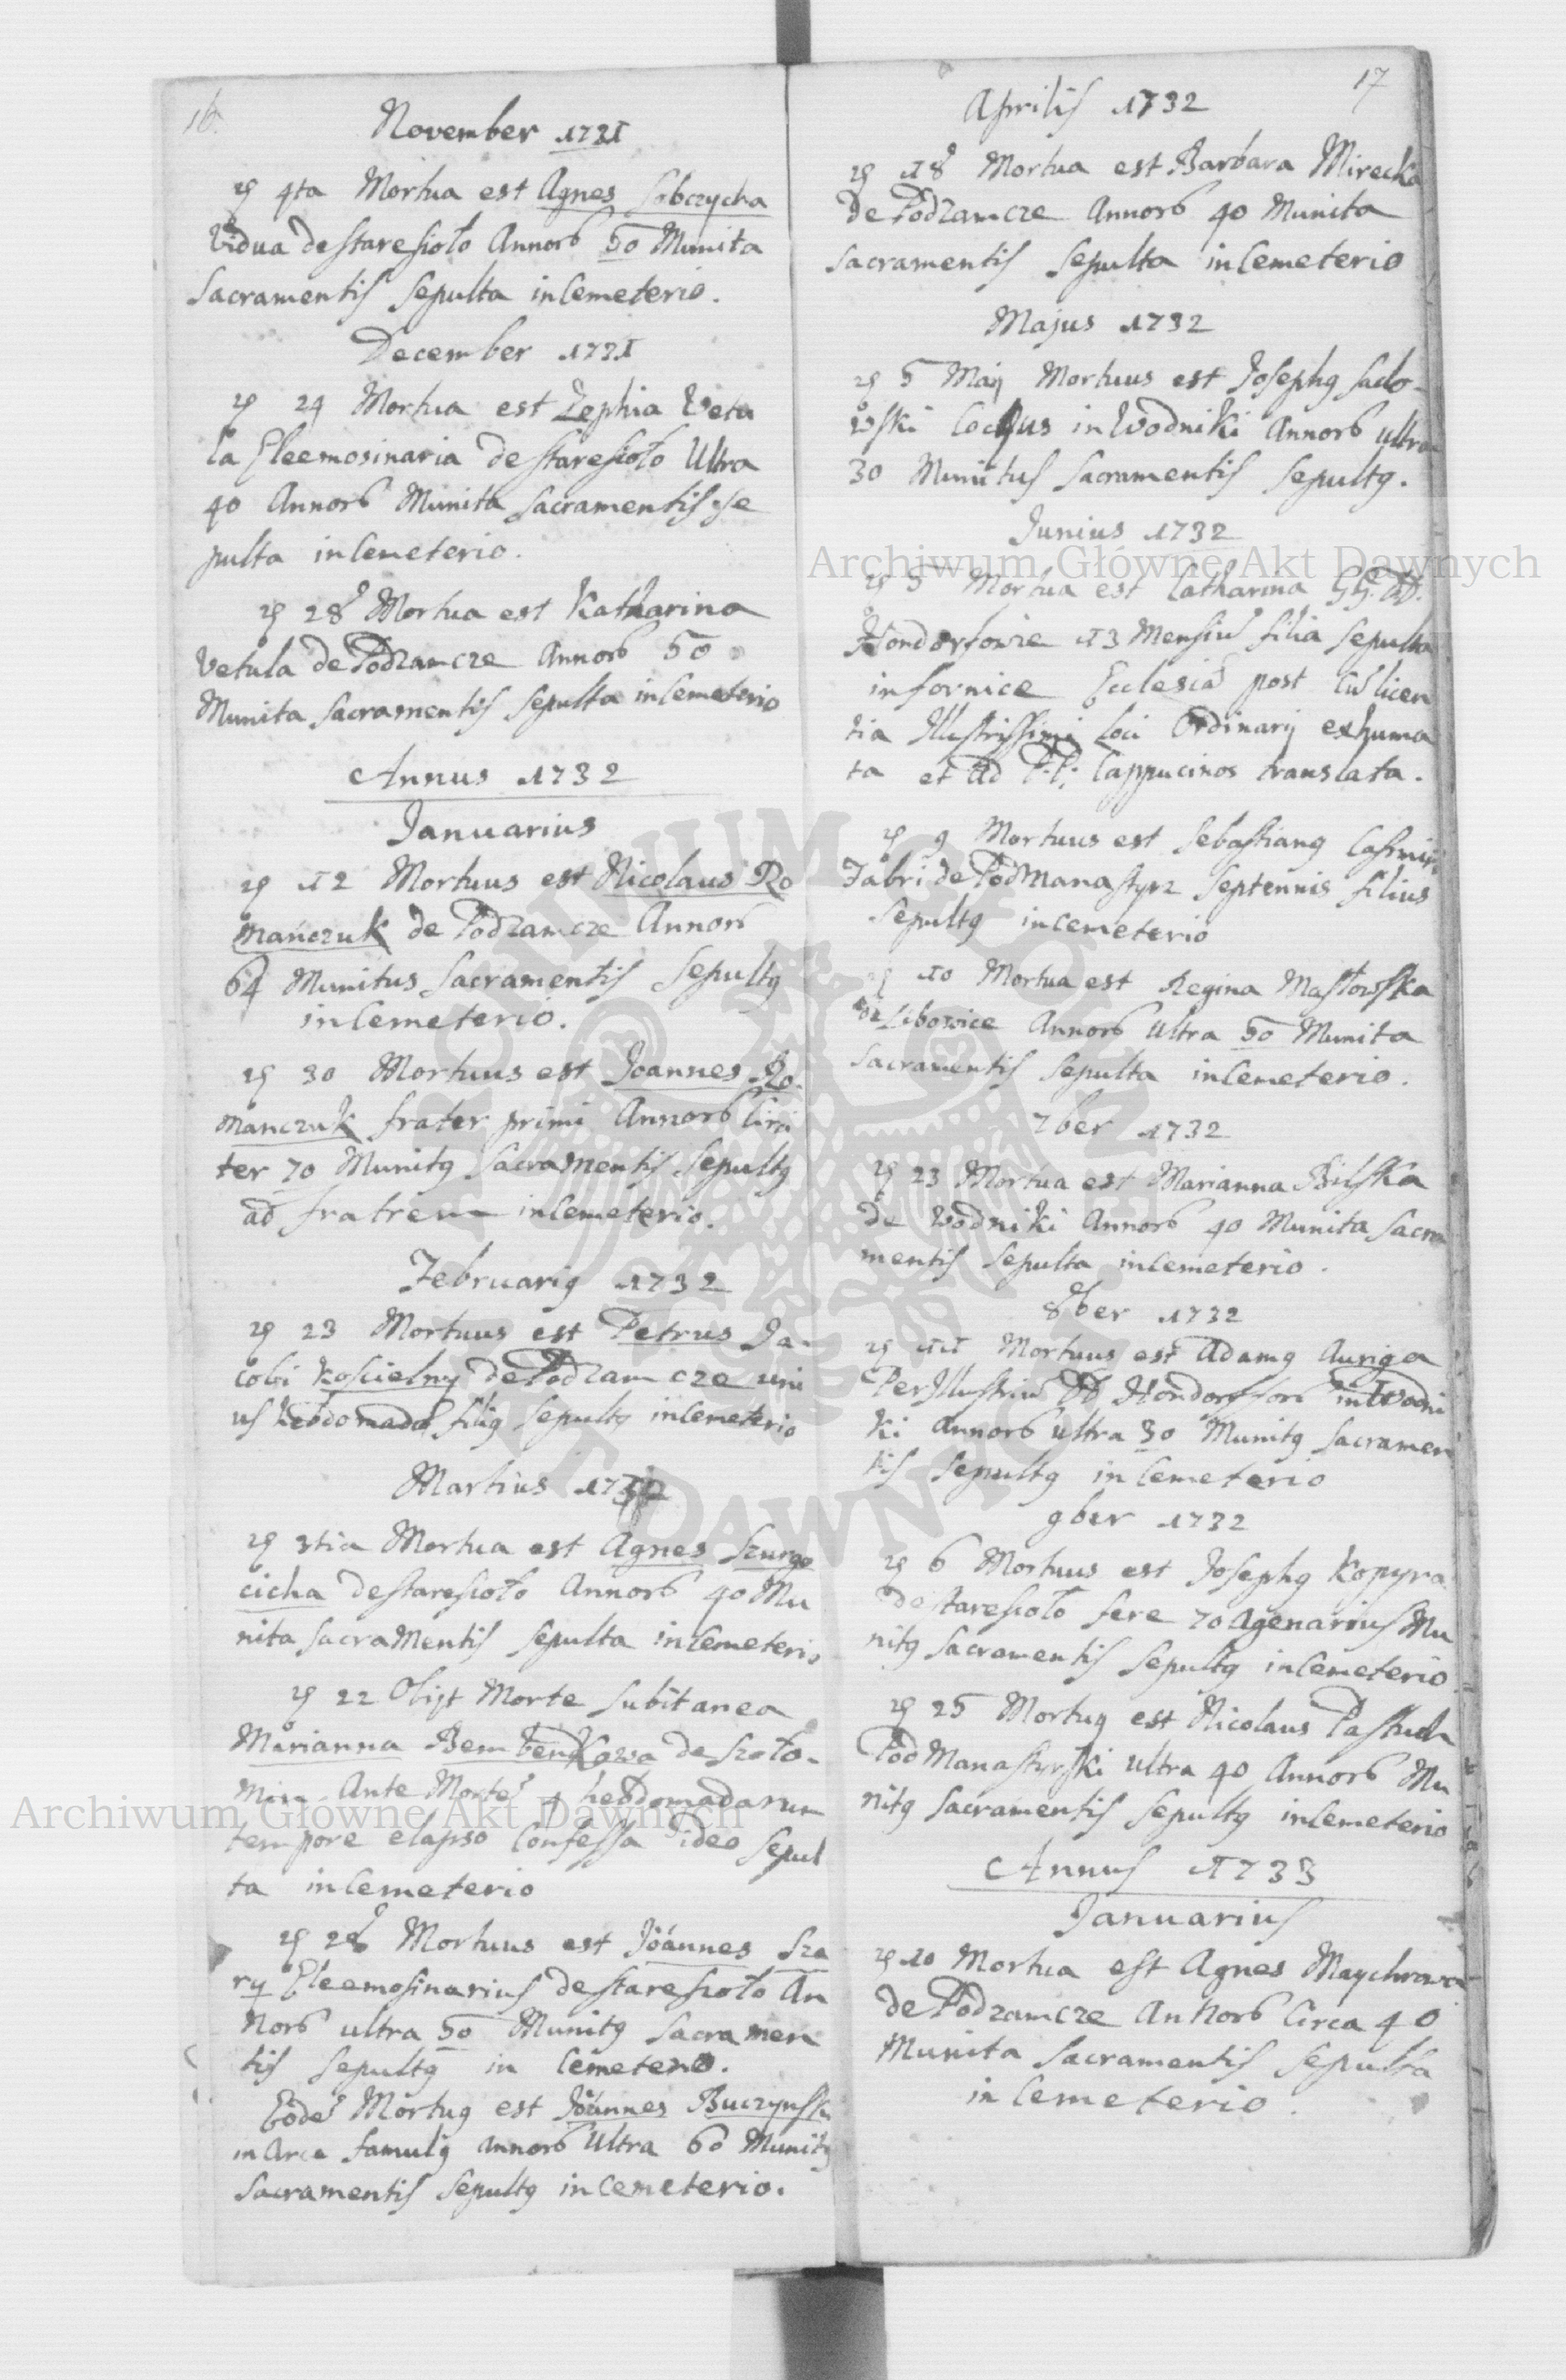 16.
November 1731
29 4ta Mortua est Agnes Sobczycha
Vidua de staresioło Annorb 50 Munita
Sacramentis Sepulta in Cemeterio.
December 1731
29 24 Mortua est Zophia Vetu
la Eleemosinaria de staresioło Ultra
40 Annorb Munita Sacramentis se
pulta in Cemeterio.
29 28 Mortua est Katharina
Vetula de Podzamcze Annorb 50
Munita Sacramentis Sepulta in Cemeterio
Annus 1732
Januarius
29 12 Mortuus est Nicolaus Ro
mańczuk de Podzamcze Annorb
64 Munitus Sacramentis Sepultg
in Cemeterio.
29 30 Mortuus est Joannes Ro-
manczuk frater primi Annorb Circi
ter 70 Munitg Sacramentis Sepultg
ad fratrem in Cemeterio.
Februarig 1732
29 23 Mortuus est Petrus Ja-
cobi Koscielny de Podzamcze uni
us hebdomadae filig Sepultg in Cemeterio
Martius 1732
29 3tia Mortua est Agnes Szurgo
cicha de staresioło Annorb 40 Mu
nita Sacramentis Sepulta in Cemeterio
29 22 Obijt Morte Subitanea
Marianna Bembenkowa de Szoło-
min Ante Morte 4 hebdomadarum
tempore elapso Confessa ideo Sepul
ta in Cemeterio
29 28 Mortuus est Joannes Sza
ry Eleemosinarius de staresioło An
norb ultra 50 Munitg Sacramen
tis Sepultg in Cemeterio.
Eode Mortug est Joannes Buczynski
in Arce famulg Annorb Ultra 60 Munitg
Sacramentis Sepultg in Cemeterio.
17
Aprilis 1732
29 18 Mortua est Barbara Mirecka
de Podzamcze Annorb 40 Munita
Sacramentis Sepulta in Cemeterio
Majus 1732
29 5 Maij Mortuus est Josephg Sado-
wski Cocqus in Wodniki Annorb ultra
30 Munitus Sacramentis Sepultg.
Junius 1732
29 5 Mortua est Catharina GG. DD.
Hondorfowie 13 Mensiu filia Sepulta
in fornice Ecclesia post Cu licen
tia Illustrissimi Loci Ordinarij exhuma
ta et ad P.P. Cappucinos translata.
29 9 Mortuus est Sebastiang Casimiri
Fabri de Podmanastyrz Septennis filius
Sepultg in Cemeterio
29 10 Mortua est Regina Masłowska
Libowice Annorb Ultra 50 Munita
Sacramentis Sepulta in Cemeterio.
7ber 1732
29 23 Mortua est Marianna Bilska
de Wodniki Annorb 40 Munita Sacra
mentis Sepulta in Cemeterio.
8ber 1732
29 11 Mortuus est Adamg Auriga
PerIllustriu DD Hondorfforb in Wodni
ki Annorb ultra 30 Munitg Sacramen
tis Sepultg in Cemeterio
9ber 1732
29 6 Mortuus est Josephg Kopyra
de staresioło fere 70 Agenarius Mu
nitg Sacramentis Sepultg in Cemeterio
29 25 Mortug est Nicolaus Pastuch
PodManastyrski Ultra 40 Annorb Mu
nitg Sacramentis Sepultg in Cemeterio
Annus 1733
Januarius
29 10 Mortua est Agnes Maychrowa
de Podzamcze Annorb Circa 40
Munita Sacramentis Sepulta
in Cemeterio.
Archiwum Główne Akt Dawnych
Archiwum Główne Akt Dawnych
ARCHIWUM GŁÓWNE AKT DAWNYCH